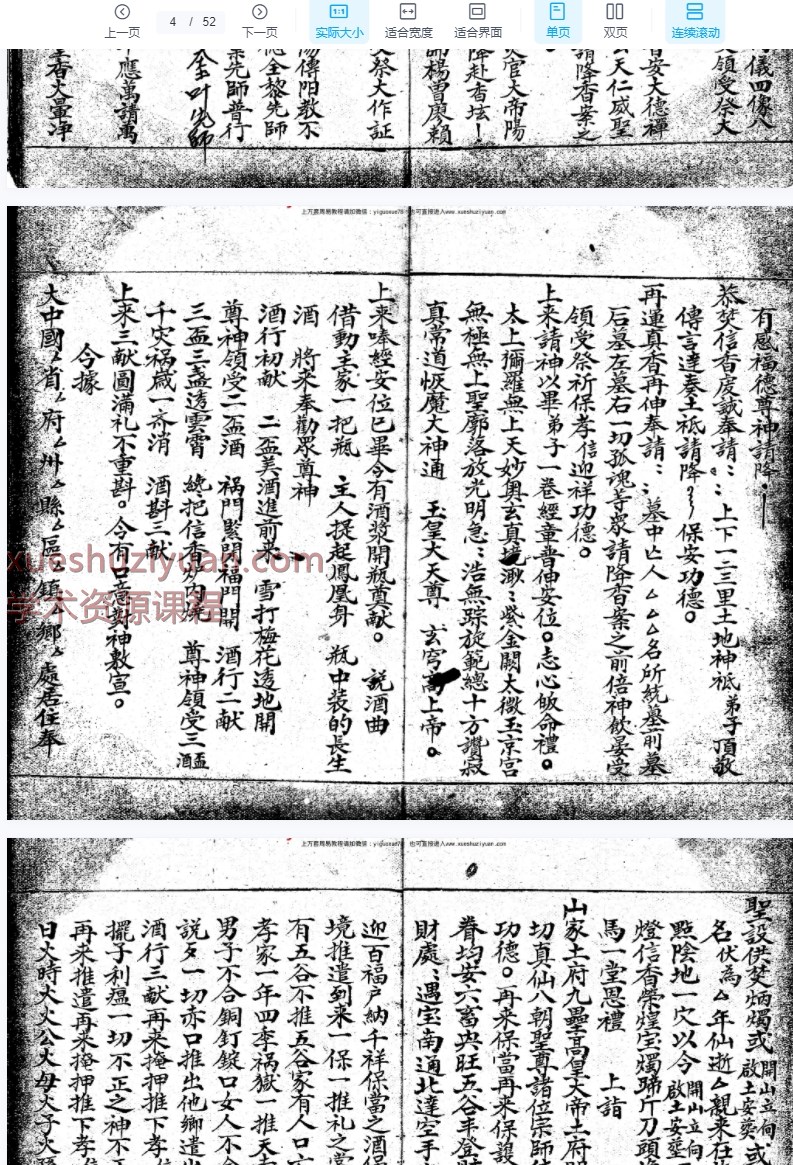 上一页
4 / 52
下一页
实际大小
适合宽度
适合页面
单页
双页
连续滚动
領受祭大
香安大德禪
天仁威聖
請降香案之
官大帝陽
降赴香坛
師楊曾廖賴
祭大作証
傳阳教不
全黎先師
先師普行
金叶先師
應萬請萬
香火最净
上万套周易教程请加微信:yiguoxue78 也可直接进入www.xueshuziyuan.com
有感福德尊神請降
恭焚信香虔誠奉請:: 上下一二三里土地神祇 弟子頂敬
傳言達奏土祇請降 保安功德。
再運真香再伸奉請:: 墓中亡人厶厶厶名所統墓前墓
后墓左墓右一切孤魂等眾請降香案之前倍神飲宴受
領受祭祈保孝信迎祥功德。
上来請神以畢弟子一卷經童普伸安位。志心皈命禮。
太上彌羅無上天妙奥玄真境渺:紫金闕太微玉京宫
無極無上聖廓落放光明急:浩無踪旋範總十方攢寂
真常道恢魔大神通 玉皇大天尊 玄穹高上帝。
上来奉經安位已畢今有酒漿開瓶奠献。 説酒曲
借動主家一把瓶 主人提起鳳凰身 瓶中裝的長生
酒 將来奉勸眾尊神
酒行初献 二盃美酒進前来 雪打梅花透地開
尊神領受二盃酒 禍門緊閉福門開 酒行二献
三盃三盞透雲霄 終把信香炉内燒 尊神領受三盃酒
千灾禍歲一齐消 酒斟三献
上来三献圓滿礼不重斟。今有口意對神敷宣。
今據
大中國厶省厶府厶州厶縣厶區厶鎮厶鄉厶處居住奉
xueshuziyuan.com
学术资源课程
上万套周易教程请加微信:yiguoxue78 也可直接进入www.xueshuziyuan.com
聖設供焚炳燭或開山立向啟土安葵或
名伏為厶年仙逝厶親来任
點陰地一穴以今開山立向啟土安葬
燈信香榮煌宝燭蹄斤刀頭
馬一堂恩禮 上詣
山家土府九壘高皇大帝土府
切真仙八朝聖尊諸位宗師
功德。再来保當再来保護
眷均安六畜興旺五谷丰登
財處:遇宝南通北達空手
迎百福户納千祥保當之酒
境推遣到来一保一推礼之
有五谷不推五谷家有人口
孝家一年四季禍嶽一推天
男子不合銅釘錠口女人不合
説歹一切赤口推出他鄉遣出
酒行三献再来掩押推下孝
擺子利瘟一切不正之神不
再来推遣再来掩押推下孝
日火時火火公火母火子火孫